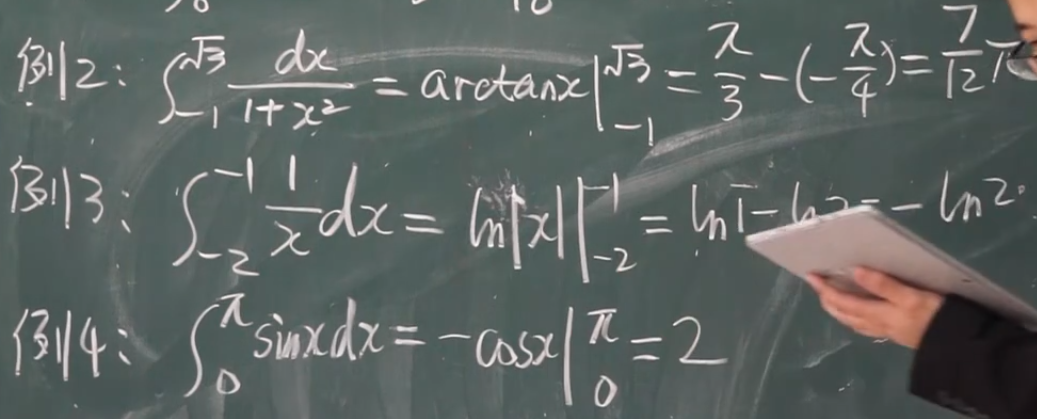 例2: ∫_{-1}^{√3} dx/(1+x²) = arctanx|_{-1}^{√3} = π/3 - (-π/4) = 7/12 π
例3: ∫_{-2}^{-1} 1/x dx = ln|x||_{-2}^{-1} = ln1 - ln2 = - ln2.
例4: ∫_{0}^{π} sinxdx = -cosx|_{0}^{π} = 2